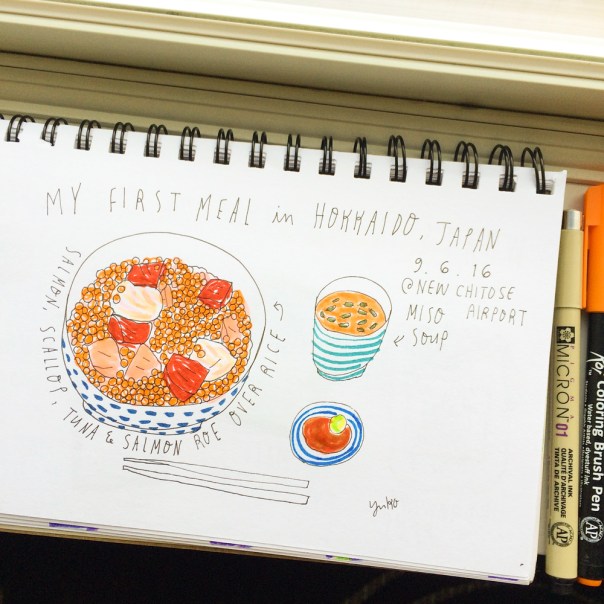 MY FIRST MEAL in HOKKAIDO, JAPAN
9.6.16
@NEW CHITOSE
AIRPORT
SALMON, SCALLOP, TUNA & SALMON ROE OVER RICE
MISO
SOUP
SAKURA
MICRON 01
ARCHIVAL INK
QUALITÉ D'ARCHIVAGE
TINTA DE ARCHIVE
AP
Koi
Coloring Brush Pen
Water-based, dyestuff ink
AP